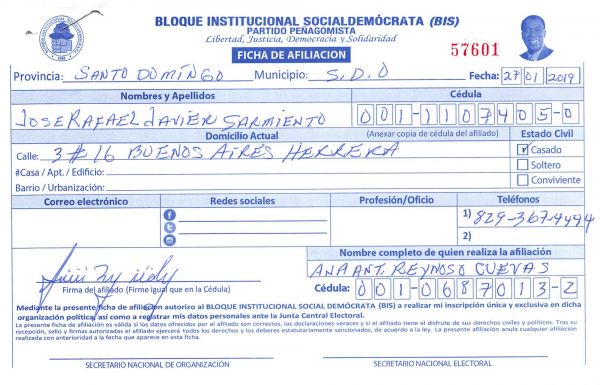 BLOQUE INSTITUCIONAL SOCIALDEMÓCRATA (BIS)
PARTIDO PEÑAGOMISTA
Libertad, Justicia, Democracia y Solidaridad
FICHA DE AFILIACION
57601
Provincia: SANTO DOMINGO Municipio: S.D.O Fecha: 27/01/2019
Nombres y Apellidos Cédula
JOSE RAFAEL JAVIER SARMIENTO 001-1107405-0
Domicilio Actual (Anexar copia de cédula del afiliado) Estado Civil
Calle: 3 #16 BUENOS AIRES HERRERA Casado
#Casa / Apt. / Edificio: Soltero
Barrio / Urbanización: Conviviente
Correo electrónico Redes sociales Profesión/Oficio Teléfonos
1) 829-367-4494
2)
Nombre completo de quien realiza la afiliación
ANA ANT. REYNOSO CUEVAS
Firma del afiliado (Firme igual que en la Cédula) Cédula: 001-0687013-2
Mediante la presente ficha de afiliación autorizo al BLOQUE INSTITUCIONAL SOCIAL DEMÓCRATA (BIS) a realizar mi inscripción única y exclusiva en dicha
organización politica, así como a registrar mis datos personales ante la Junta Central Electoral.
La presente ficha de afiliación es válida si los datos ofrecidos por el afiliado son correctos, las declaraciones veraces y si el afiliado tiene el disfrute de sus derechos civiles y políticos. Tras su
recepción, sello y firmas autorizadas el afiliado ejercerá todos los derechos y los deberes estatutariamente sancionados, de acuerdo a la ley. La presente afiliación anula cualquier afiliación
realizada con anterioridad a la fecha que aparece en esta ficha.
SECRETARIO NACIONAL DE ORGANIZACIÓN SECRETARIO NACIONAL ELECTORAL